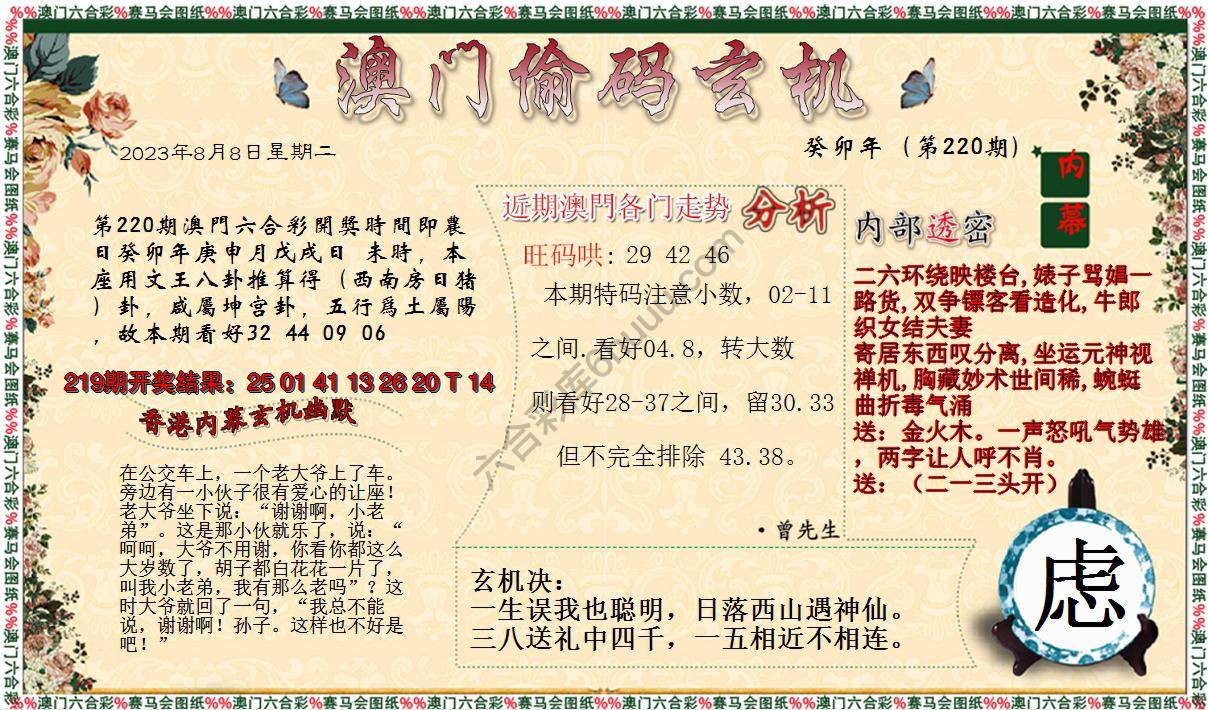 %%澳门六合彩%赛马会图纸%%澳门六合彩%赛马会图纸%%澳门六合彩%赛马会图纸%%澳门六合彩%赛马会图纸%%澳门六合彩%赛马会图纸%%澳门六合彩%赛马会图纸%%
澳门偷码玄机
2023年8月8日星期二
癸卯年（第220期）
内幕
第220期澳門六合彩開獎時間即農
日癸卯年庚申月戊戌日 未時，本
座用文王八卦推算得（西南房日猪
）卦，咸屬坤宫卦，五行爲土屬陽
，故本期看好32 44 09 06
219期开奖结果：25 01 41 13 26 20 T 14
香港内幕玄机幽默
在公交车上，一个老大爷上了车。
旁边有一小伙子很有爱心的让座！
老大爷坐下说：“谢谢啊，小老
弟”。这是那小伙就乐了，说：“
呵呵，大爷不用谢，你看你都这么
大岁数了，胡子都白花花一片了，
叫我小老弟，我有那么老吗”？这
时大爷就回了一句，“我总不能
说，谢谢啊！孙子。这样也不好是
吧！”
近期澳門各门走势 分析
旺码哄: 29 42 46
本期特码注意小数，02-11
之间.看好04.8，转大数
则看好28-37之间，留30.33
但不完全排除 43.38。
·曾先生
内部透密
二六环绕映楼台,婊子骂娼一
路货,双争镖客看造化,牛郎
织女结夫妻
寄居东西叹分离,坐运元神视
禅机,胸藏妙术世间稀,蜿蜒
曲折毒气涌
送：金火木。一声怒吼气势雄
，两字让人呼不肖。
送：（二一三头开）
玄机决：
一生误我也聪明，日落西山遇神仙。
三八送礼中四千，一五相近不相连。
虑
%%澳门六合彩%赛马会图纸%%澳门六合彩%赛马会图纸%%澳门六合彩%赛马会图纸%%澳门六合彩%赛马会图纸%%澳门六合彩%赛马会图纸%%澳门六合彩%赛马会图纸%%